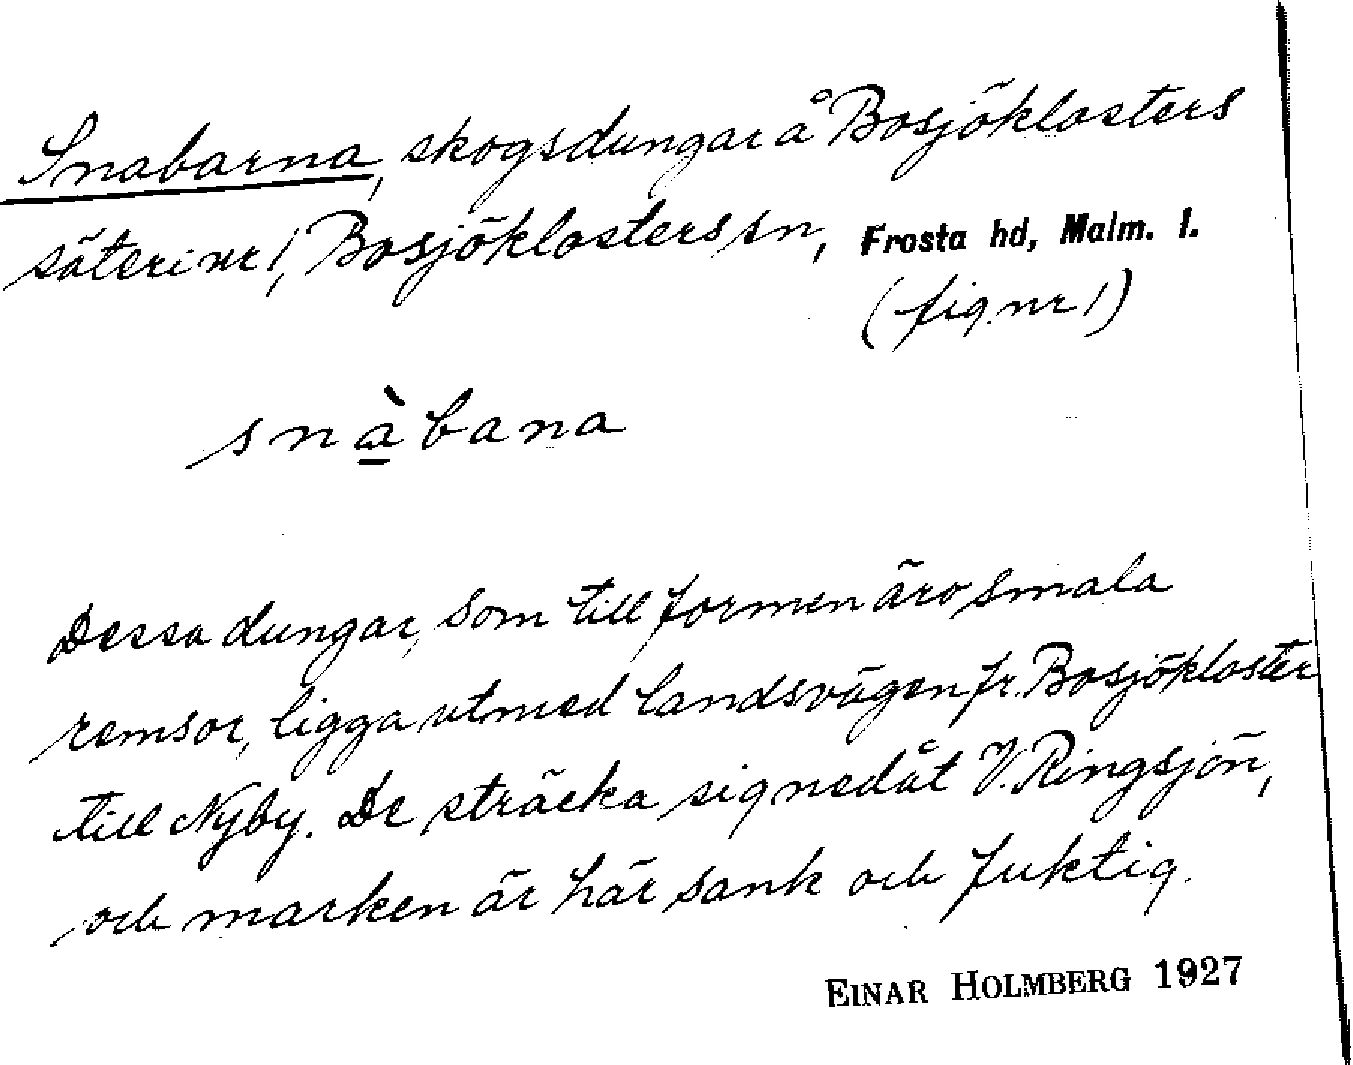 Snabarna, skogsdungar å Bosjöklosters
säteri nr 1, Bosjöklosters sn, Frosta hd, Malm. l.
(fig. nr 1)
snà̱bana
Dessa dungar, som till formen äro smala
remsor, ligga utmed landsvägen fr. Bosjökloster
till Nyby. De sträcka sig nedåt V. Ringsjön,
och marken är här sank och fuktig.
EINAR HOLMBERG 1927